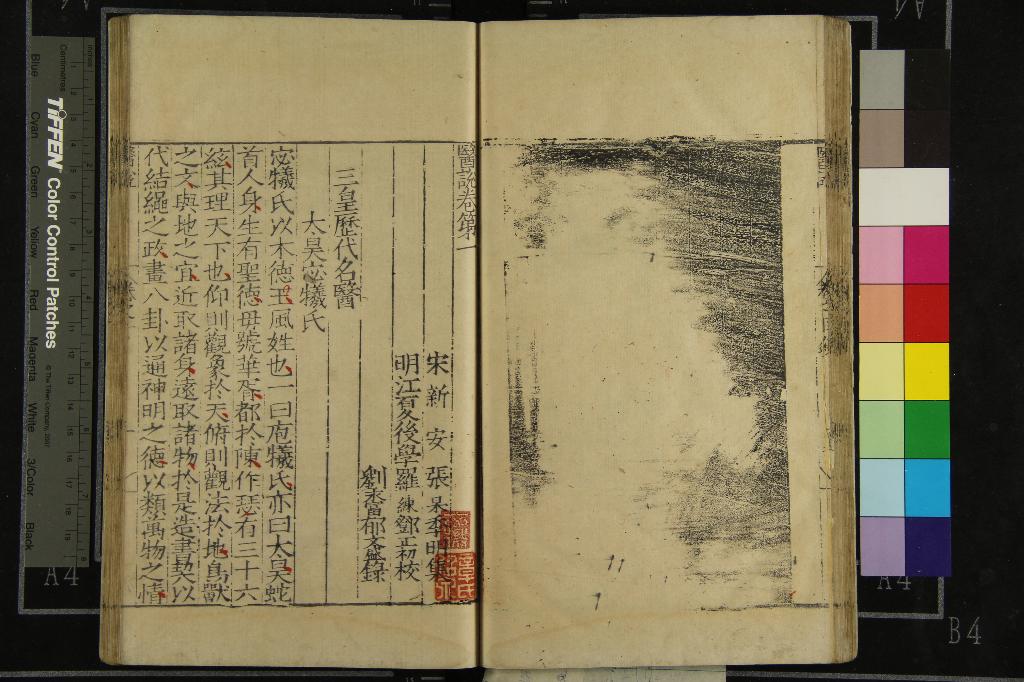 醫說卷第一
宋新安張杲季明集
明江夏後學羅練鄧正初校
三皇歷代名醫
太昊宓犧氏
宓犧氏以木德王風姓也一曰庖犧氏亦曰太昊蛇
首人身生有聖德母號華胥都於陳作瑟有三十六
絃其理天下也仰則觀象於天俯則觀法於地鳥獸
之文與地之宜近取諸身遠取諸物於是造書契以
代結繩之政畫八卦以通神明之德以類萬物之情
TIFFEN Color Control Patches
© The Tiffen Company, 2007
Centimetres
Inches
Blue
Cyan
Green
Yellow
Red
Magenta
White
3/Color
Black
A4
A4
B4